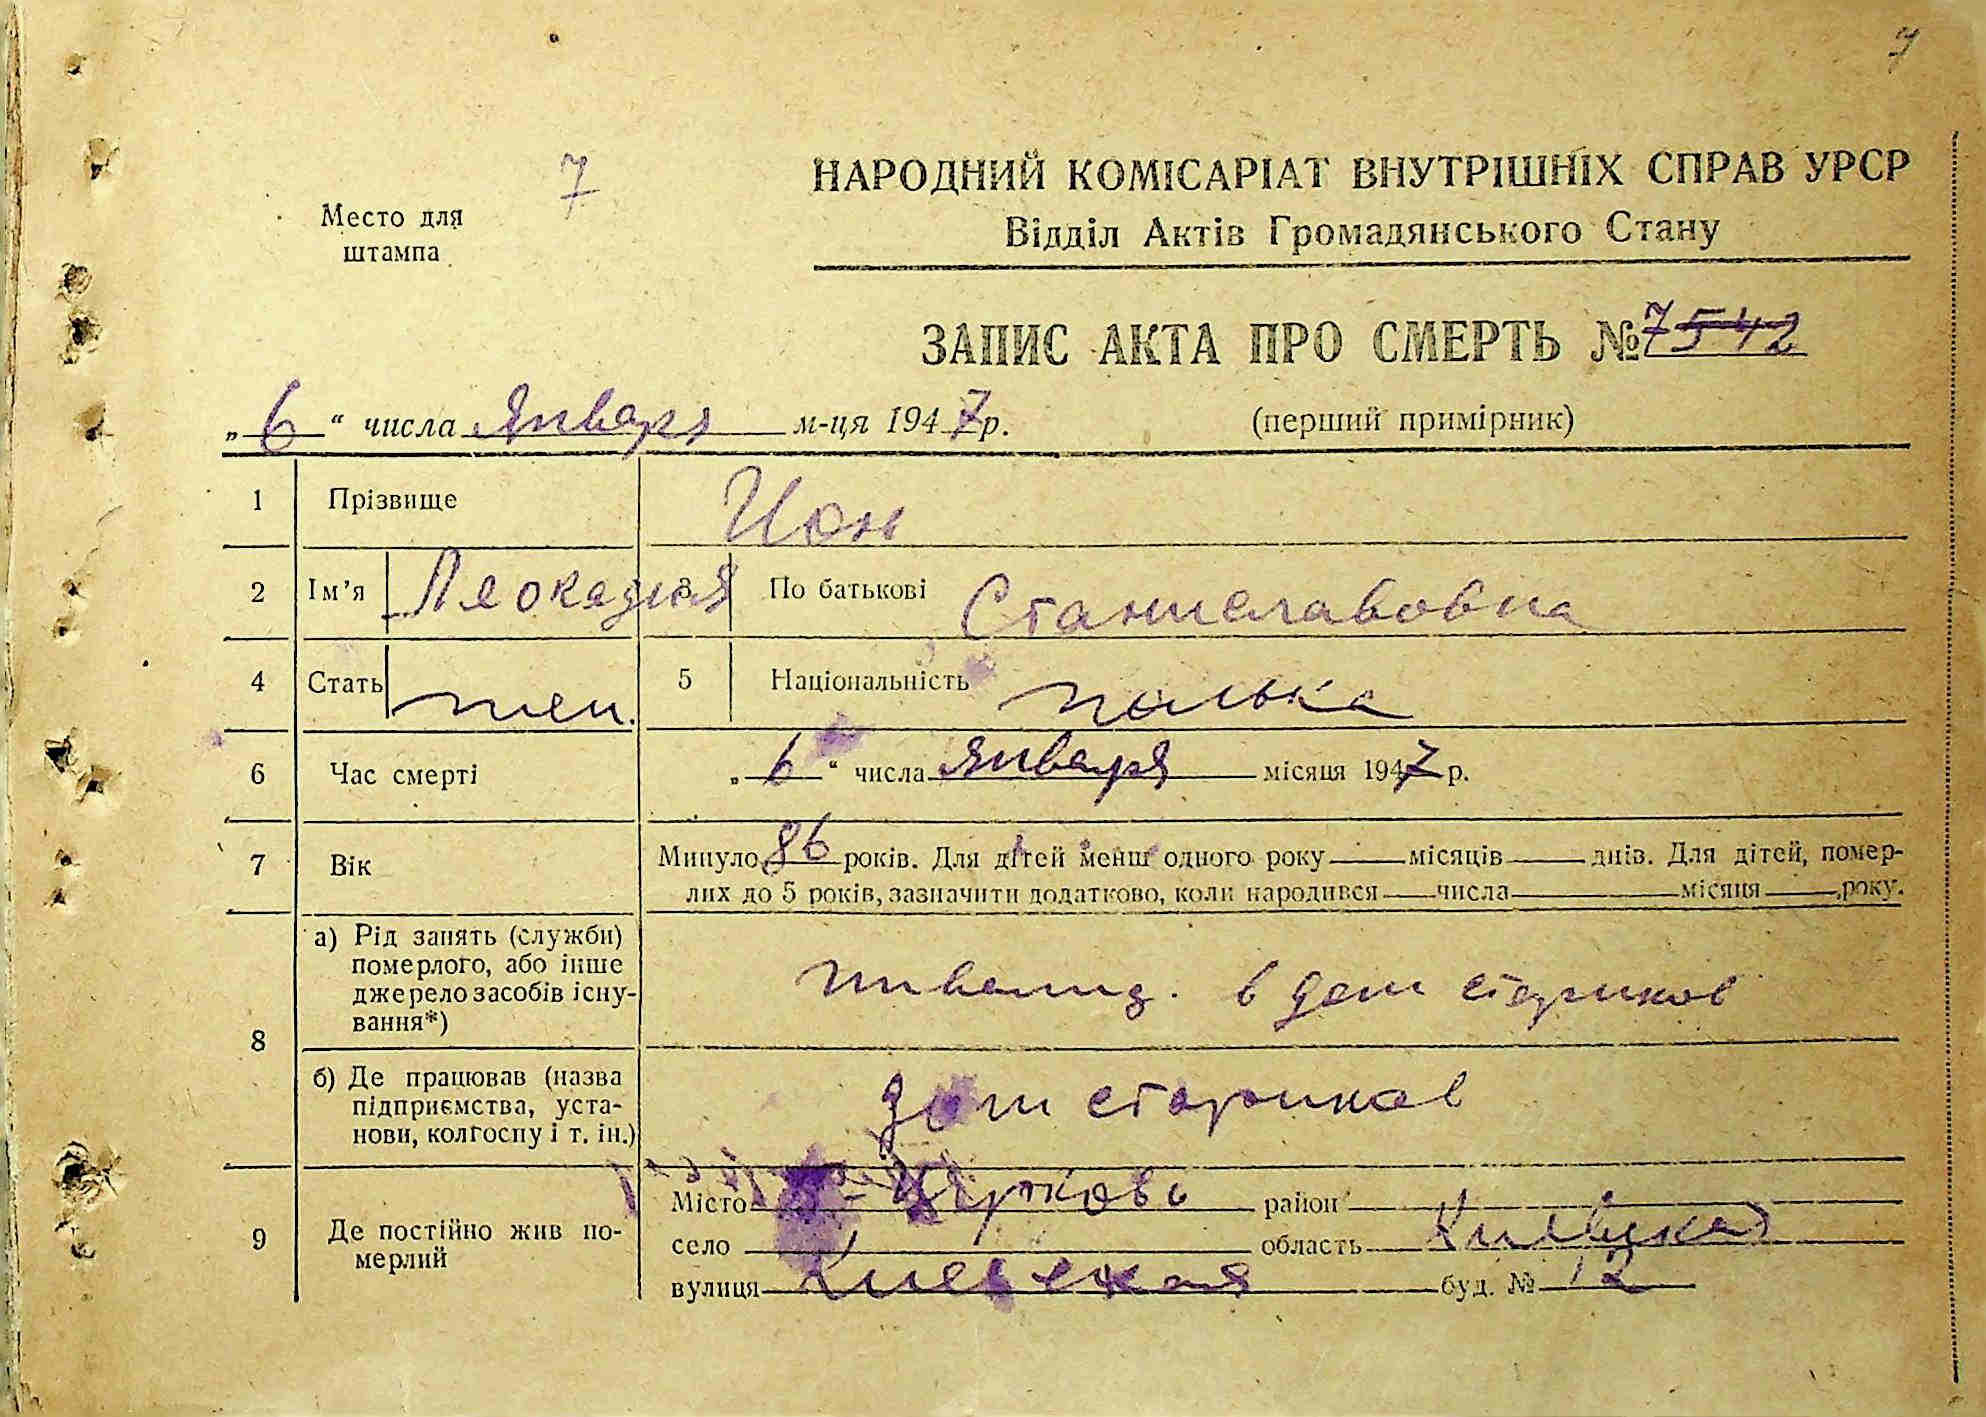 7
Место для
штампа
7
НАРОДНИЙ КОМІСАРІАТ ВНУТРІШНІХ СПРАВ УРСР
Відділ Актів Громадянського Стану
ЗАПИС АКТА ПРО СМЕРТЬ № 7 542
„ 6 “ числа Января м-ця 1947 р. (перший примірник)
1 Прізвище Йон
2 Ім’я Леокадия 3 По батькові Станиславовна
4 Стать жен. 5 Національність полька
6 Час смерті „ 6 “ числа Января місяця 1947 р.
7 Вік Минуло 86 років. Для дітей менш одного року місяців днів. Для дітей, помер-
лих до 5 років, зазначити додатково, коли народився числа місяця року.
8 а) Рід занять (служби)
померлого, або інше
джерело засобів існу-
вання*)
инвалид. в дом стариков
б) Де працював (назва
підприємства, уста-
нови, колгоспу і т. ін.)
дом стариков
9 Де постійно жив по-
мерлий
Місто Б-Церковь район
село область Киевская
вулиця Киевская буд. № 12